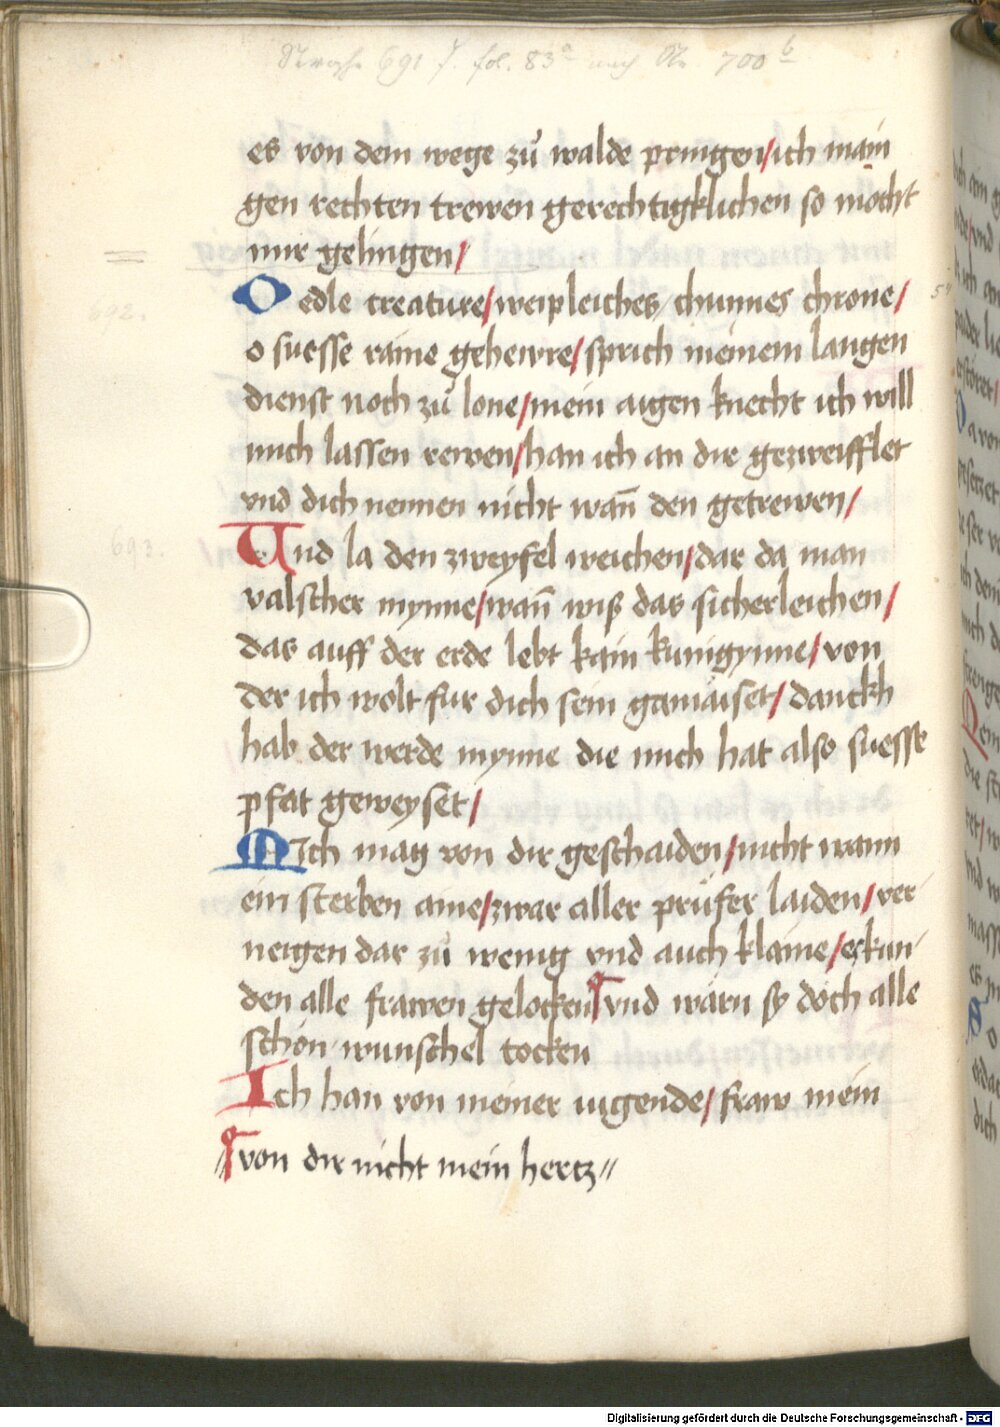 Stroph 691 f. fol. 83a nach Nr. 700b
es von dem wege zů walde pringen/ich main
gen rechten trewen gerechtigklichen so möcht
mir gelingen/
O edle creature/weipleiches chunnes chrone/
692.
o suesse raine gehewre/sprich meinem langen
dienst noch zů lone/mein aigen knecht ich will
mich lassen rewen/han ich an dir gezweifflet
vnd dich nennen nicht wan̄ den getrewen/
Vnd la den zweyfel weichen/dar da man
693.
valscher mynne/wan̄ wiß das sicherleichen/
das auff der erde lebt kain kunigynne/von
der ich wolt fur dich sein gamaiset/danckh
hab der werde mynne die mich hat also suesse
pfat geweyset/
MIch mag von dir geschaiden/nicht wann
ein sterben aine/zwar aller prüfer laiden/ver
neigen dar zů wenig vnd auch klaine/es kun
den alle frawen gelocken vnd wärn sy doch alle
schön wunschel tocken
Ich han von meiner iugende/fraw mein
von dir nicht mein hertz //
Digitalisierung gefördert durch die Deutsche Forschungsgemeinschaft - DFG